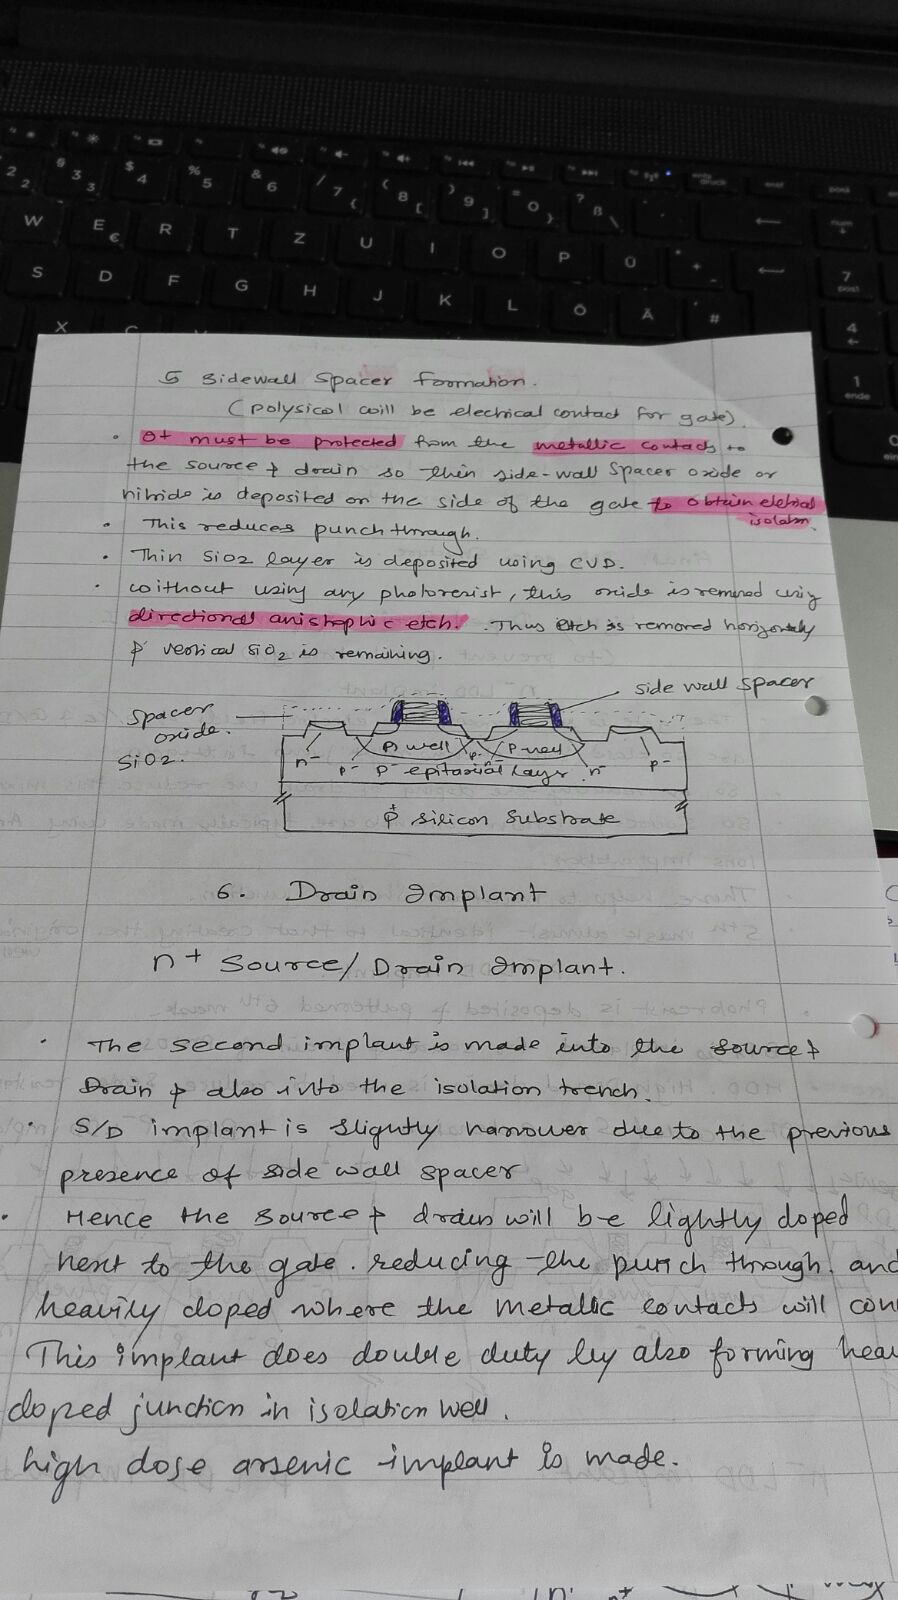 2 3 $ 4 % 5 & 6 / 7 { ( 8 [ ) 9 ] = 0 } ? ß \
W E € R T Z U I O P Ü + ~
S D F G H J K L Ö Ä #
X
num
7 pos1
4
1 ende
5 Sidewall Spacer Formation.
(polysicol will be electrical contact for gate).
• Ot must be protected from the metallic contacts to
the source & drain so thin side-wall Spacer oxide or
nitride is deposited on the side of the gate to obtain eletrical
isolatn.
• This reduces punch through.
• Thin SiO2 layer is deposited using CVD.
• without using any photoresist, this oxide is removed using
directional anistophic etch. Thus etch is removed horizontaly
& vertical SiO2 is remaining.
side wall spacer
spacer
oxide.
SiO2.
n- p- p well p- n- p well n- p-
p- epitaxial layer
p+ silicon substrate
6. Drain Implant
n+ Source/Drain Implant.
• The second implant is made into the source &
Drain & also into the isolation trench.
• S/D implant is slightly narrower due to the previous
presence of side wall spacer
• Hence the source & drain will be lightly doped
next to the gate. reducing the punch through. and
heavily doped where the metallic contacts will con
This implant does double duty by also forming hea
doped junction in isolation well.
high dose arsenic implant is made.